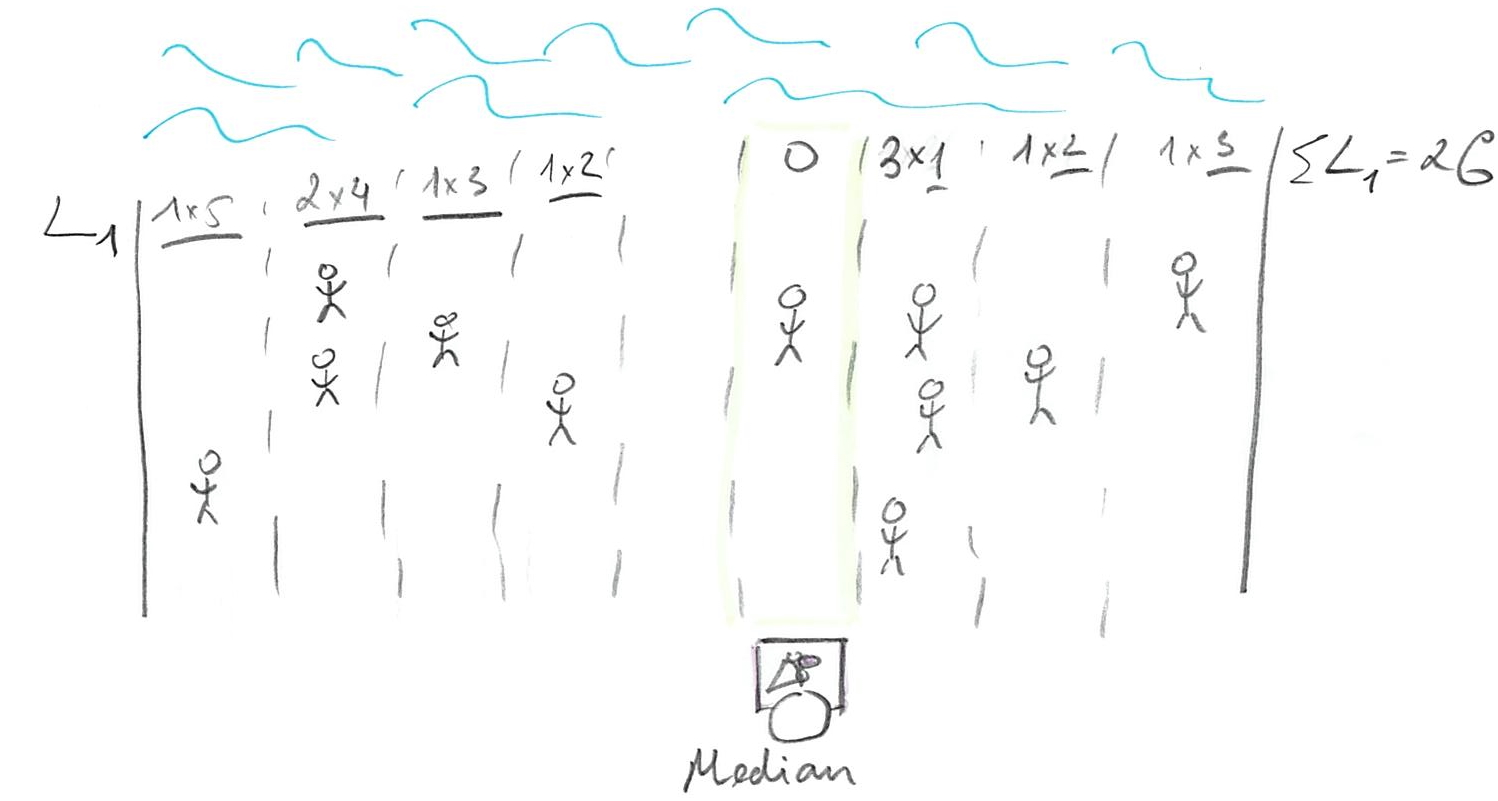 L₁ 1×5 2×4 1×3 1×2 0 3×1 1×2 1×3 ΣL₁=26
Median